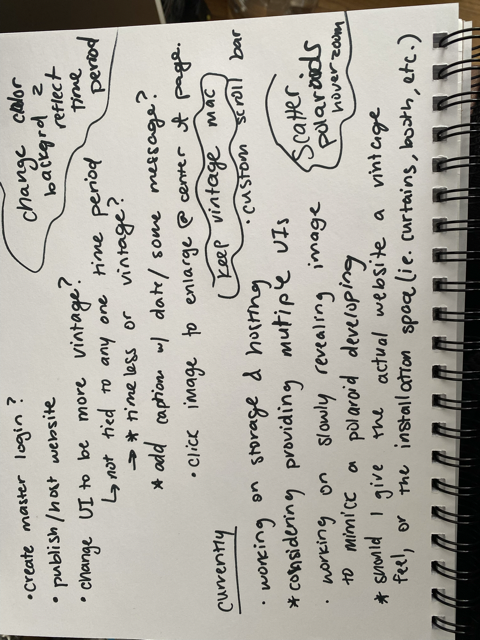 • create master login?
• publish/host website
• change UI to be more vintage?
↳ not tied to any one time period
→ * timeless or vintage?
* add caption w/ date/some message?
• click image to enlarge @ center of page.
change color
backgrd 2
reflect
time
period
keep vintage mac
• custom scroll bar
Scatter
polaroids
hover zoom
currently
• working on storage & hosting
* considering providing mutiple UIs
• working on slowly revealing image
to mimicc a polaroid developing
* should I give the actual website a vintage
feel, or the installation space (ie. curtains, booth, etc.)